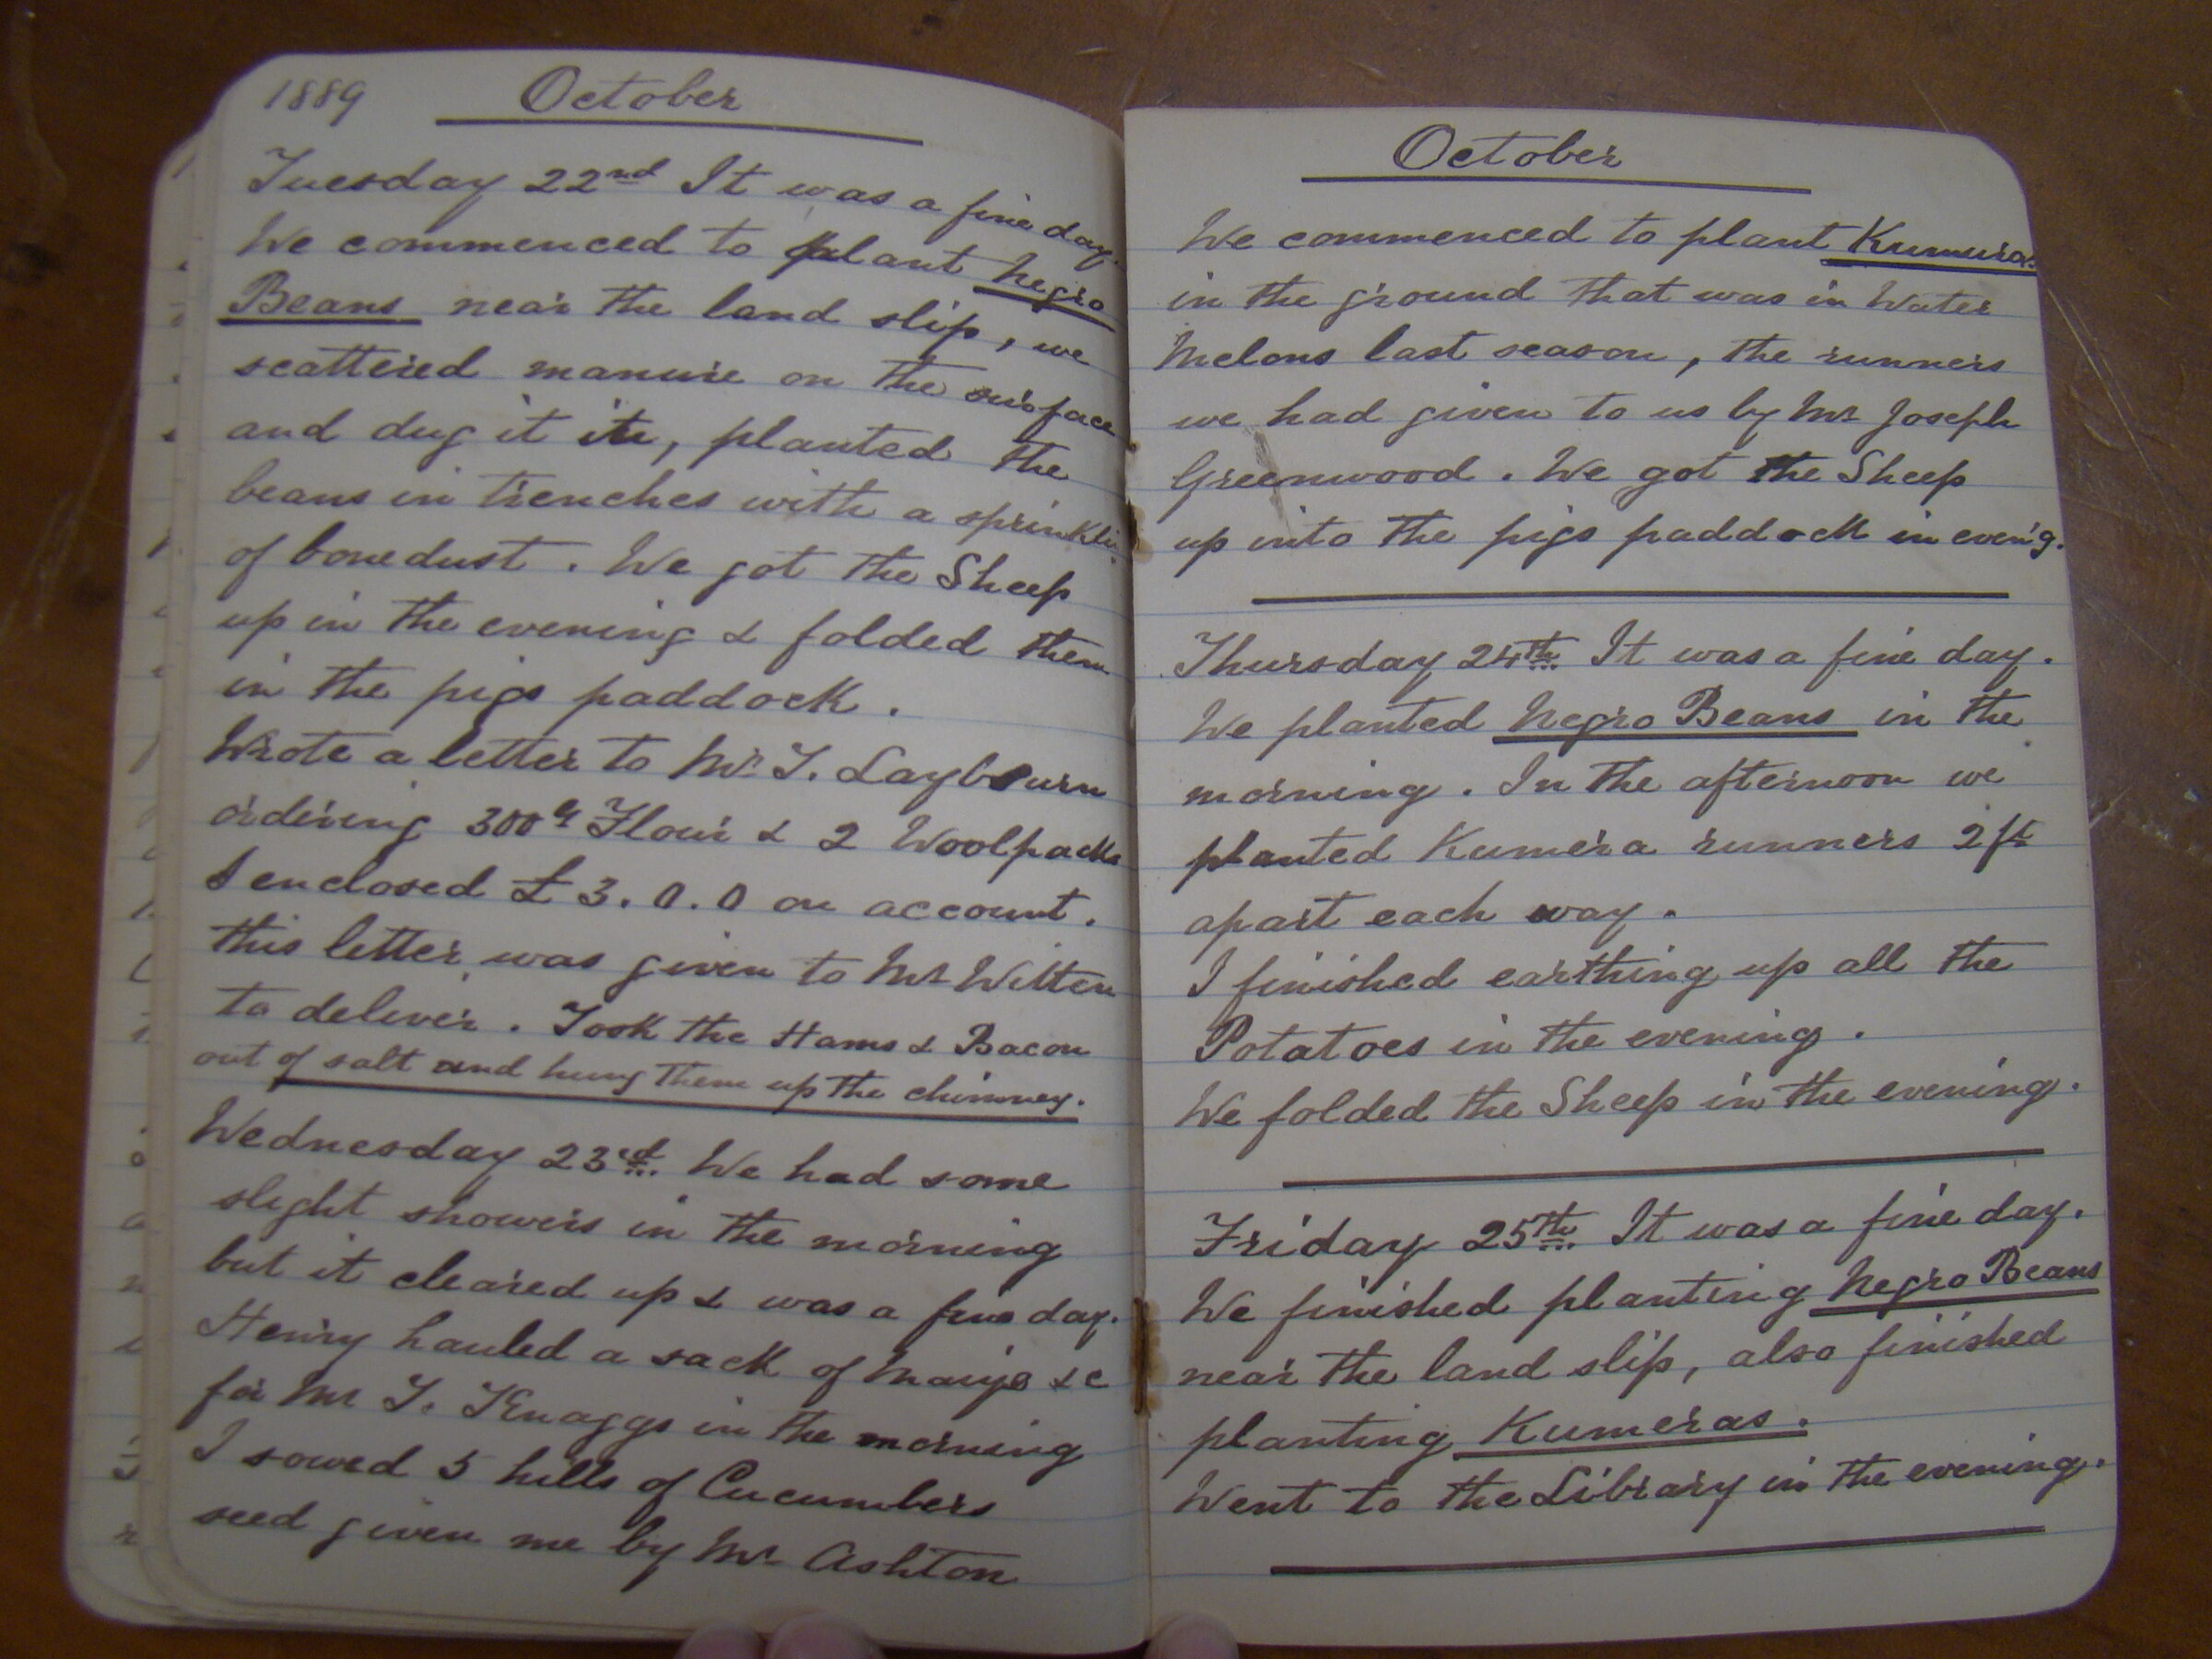 1889 October
Tuesday 22nd It was a fine day.
We commenced to plant Negro
Beans near the land slip, we
scattered manure on the surface
and dug it in, planted the
beans in trenches with a sprinkli
of bonedust. We got the Sheep
up in the evening & folded them
in the pigs paddock.
Wrote a letter to Mr. T. Laybourn
ordering 300 Flour & 2 Woolpacks
I enclosed £3.0.0 on account.
this letter was given to Mr Witten
to deliver. Took the Hams & Bacon
out of salt and hung them up the chimney.
Wednesday 23rd. We had some
slight showers in the morning
but it cleared up & was a fine day.
Henry hauled a sack of Maize &c
for Mr T. Knaggs in the morning
I sowed 5 hills of Cucumbers
seed given me by Mr Ashton
October
We commenced to plant Kumeras
in the ground that was in Water
Melons last season, the runners
we had given to us by Mr Joseph
Greenwood. We got the Sheep
up into the pigs paddock in even'g.
Thursday 24th It was a fine day.
We planted Negro Beans in the
morning. In the afternoon we
planted Kumera runners 2 ft
apart each way.
I finished earthing up all the
Potatoes in the evening.
We folded the Sheep in the evening.
Friday 25th It was a fine day.
We finished planting Negro Beans
near the land slip, also finished
planting Kumeras.
Went to the Library in the evening.